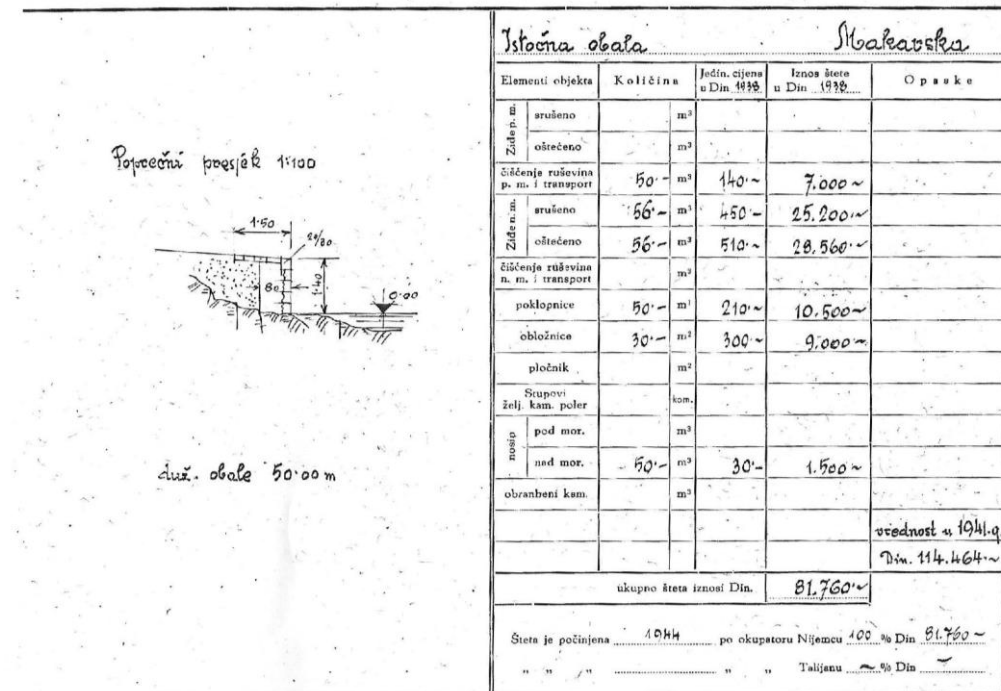 Poprečni presjek 1:100
1·50
20/30
80
1·40
0·00
duž. obale 50·00 m
Istočna obala Makarska
Elementi objekta Količina Jedin. cijena u Din 1938 Iznos štete u Din 1938 Opaske
Ziđe p. m. srušeno m³
oštećeno m³
čišćenje ruševina p. m. i transport 50·– m³ 140·~ 7.000 ~
Ziđe n. m. srušeno 56·– m³ 450·– 25.200·~
oštećeno 56·– m³ 510·~ 28.560·~
čišćenje ruševina n. m. i transport m³
poklopnice 50·– m¹ 210·~ 10.500~
obložnice 30·– m² 300·~ 9.000·~
pločnik m²
Stupovi želj. kam. poler kom.
nosip pod mor. m³
nad mor. 50·– m³ 30·– 1.500 ~
obranbeni kam. m³
vrednost u 1941.g.
Din. 114.464·~
ukupno šteta iznosi Din. 81.760·~
Šteta je počinjena 1944 po okupatoru Nijemcu 100 % Din 81.760 ~
" " " " " Talijanu ~ % Din ~